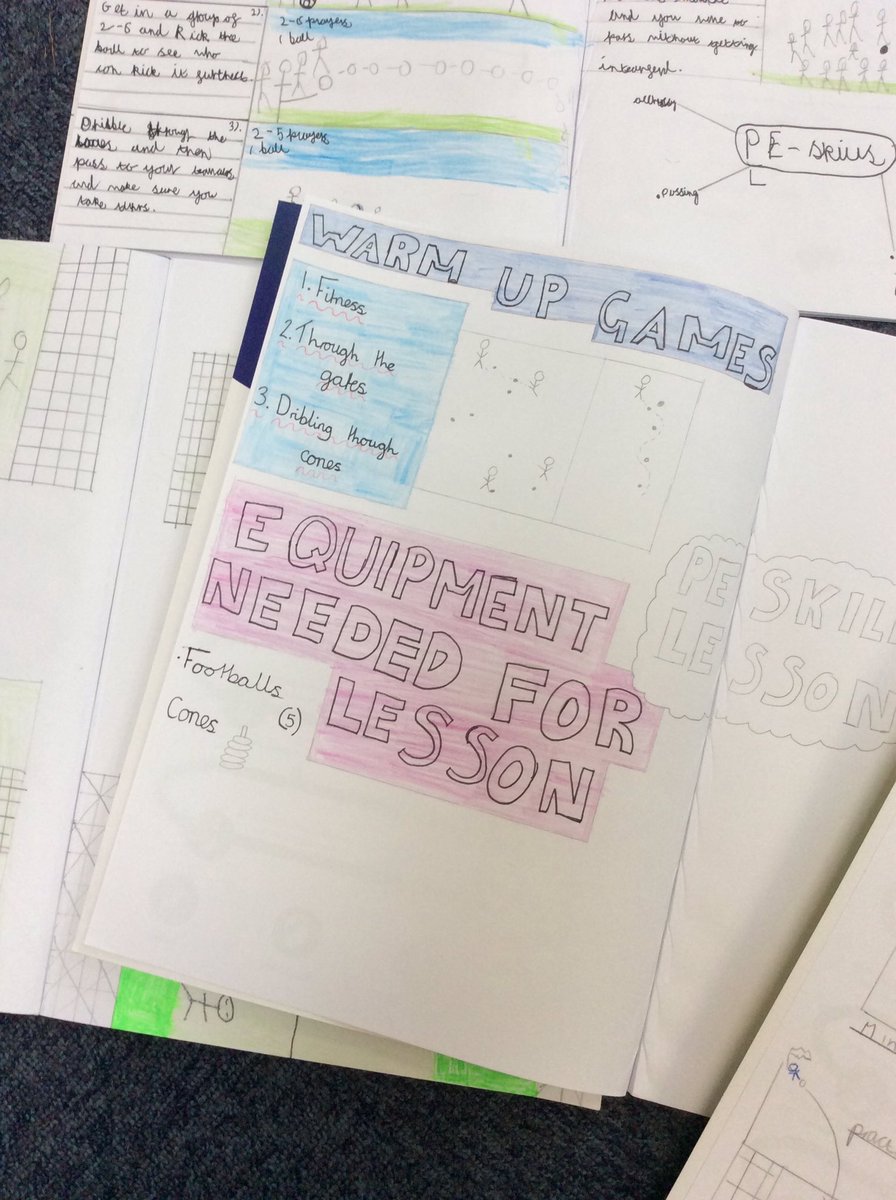 Get in a group of
2-6 and Kick the
ball to see who
can kick it furthest.
2).
2-6 prayers
1 ball
3).
Dribble through the
and then
pass to your
and make sure you
take turns.
2-5 prayers
1 ball
and you have to
pass without getting
accuracy
PE-skills
L
.passing
WARM UP GAMES
1. Fitness
2. Through the
gates
3. Dribling though
cones
EQUIPMENT
NEEDED FOR
LESSON
·Footballs
Cones (5)
PE SKILL
LESSON
Min